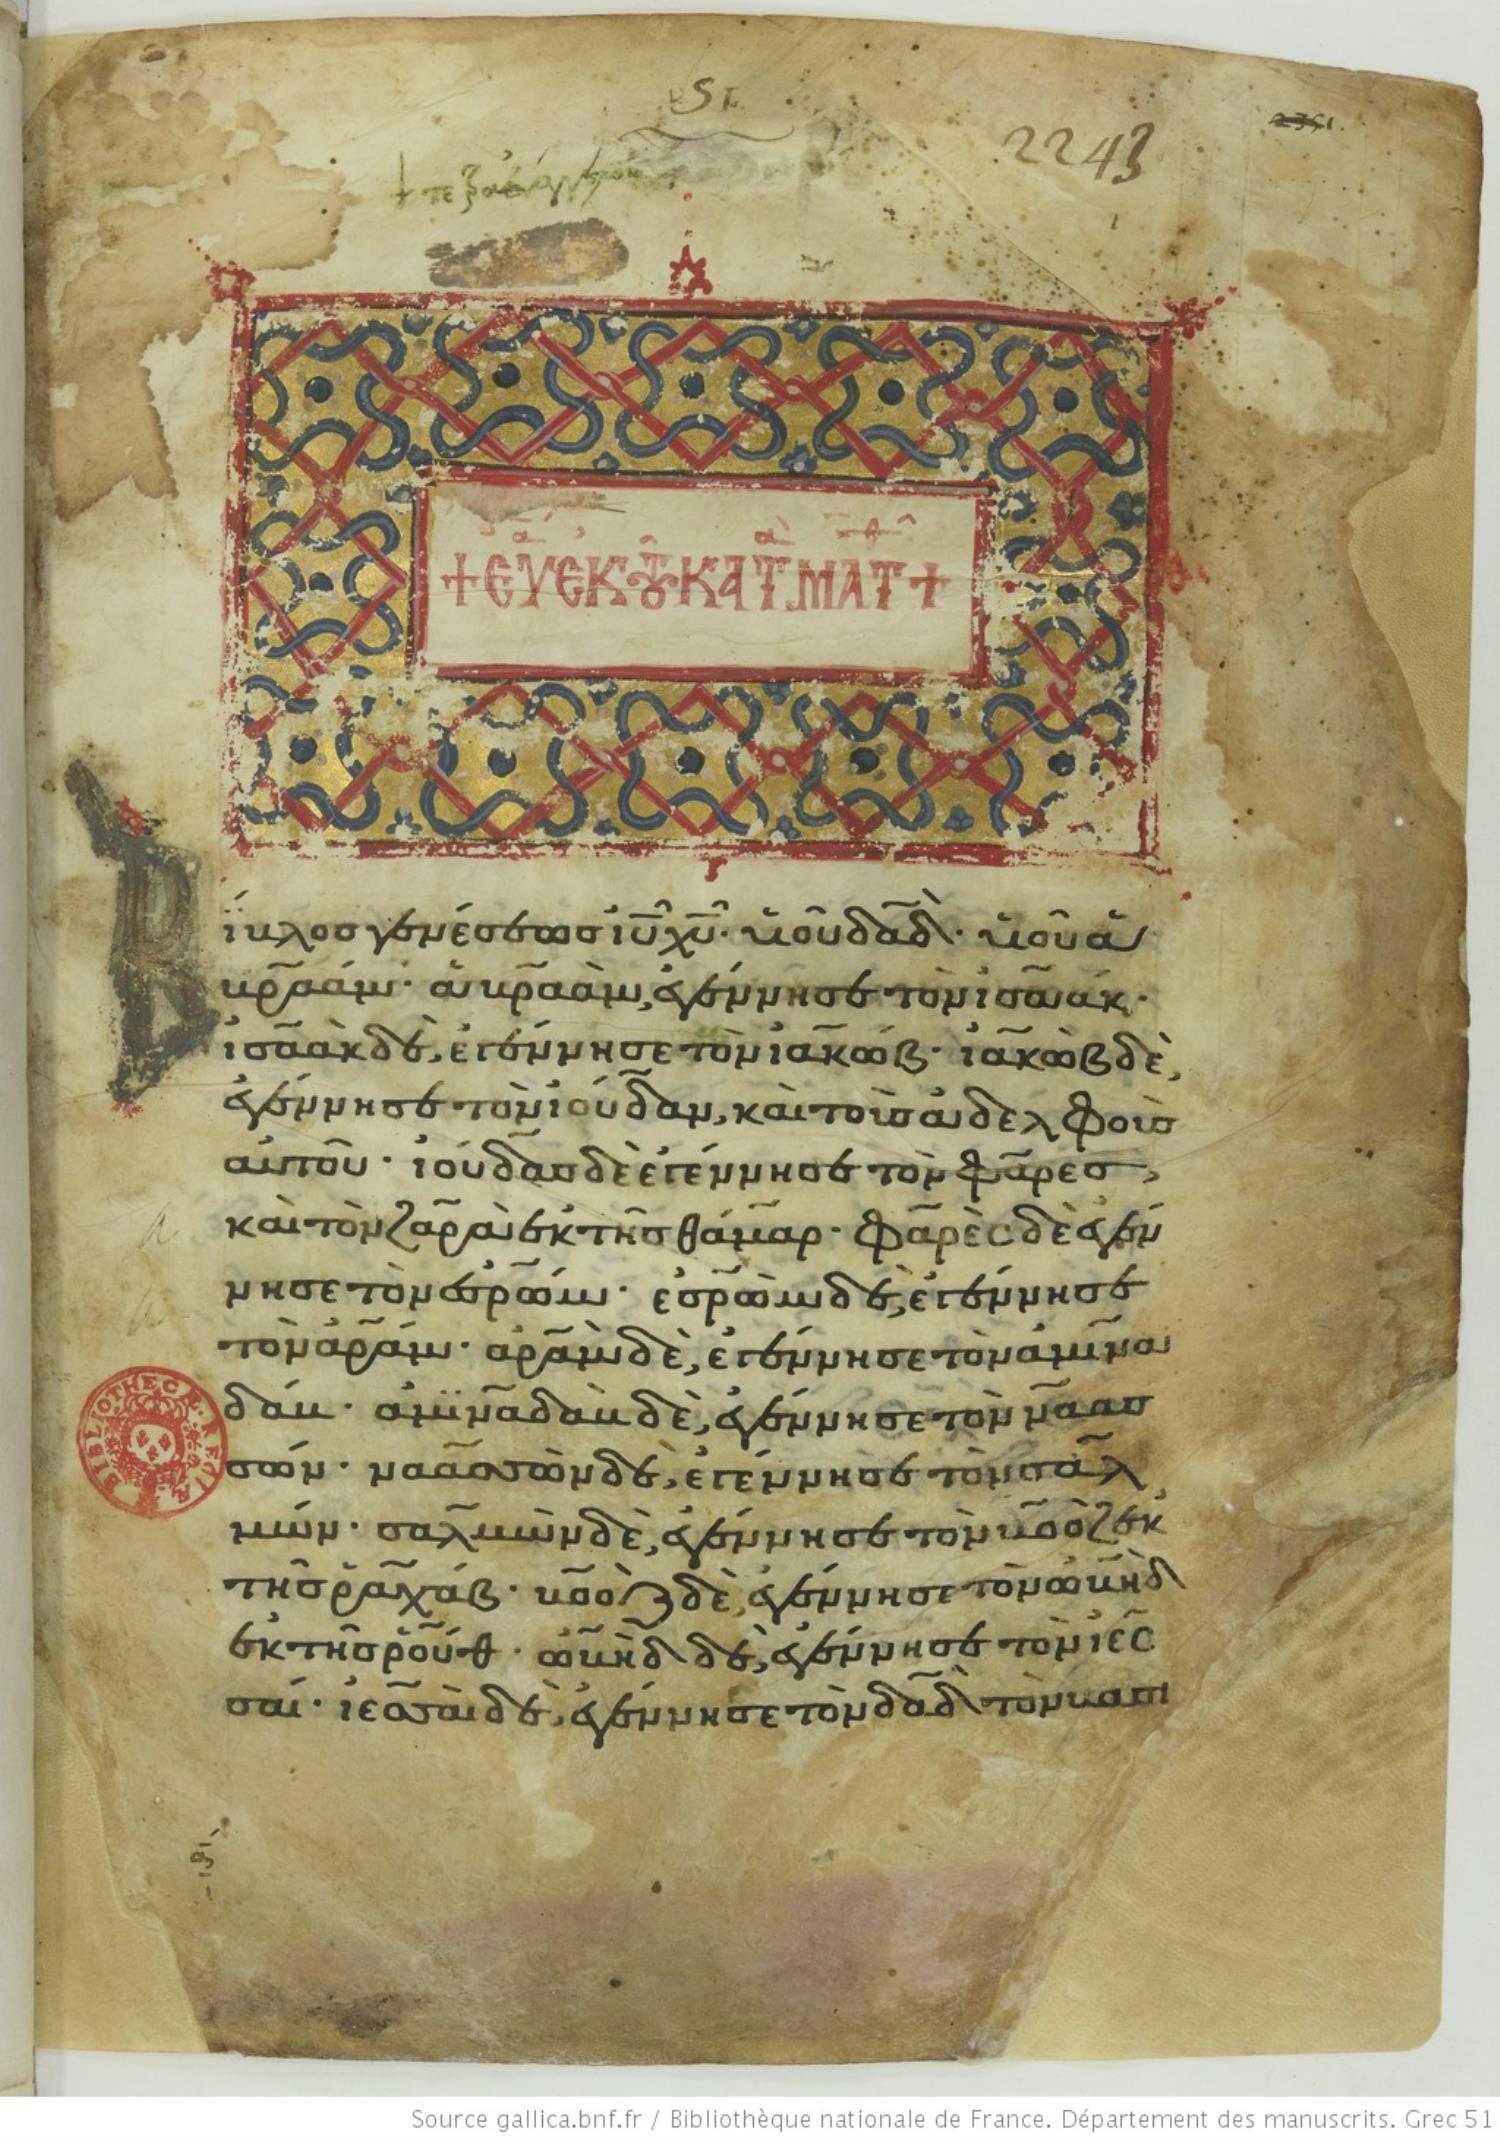 2243
+ ΕΥ ἐκ τοῦ κατ Ματθ +
ίβλος γενέσεως ἰῦ χῦ· ὑιοῦ δαδ· ὑιοῦ ἀ
βραάμ· ἀβραὰμ, ἐγέννησε τὸν ἰσαάκ·
ἰσαὰκ δὲ, ἐγέννησε τὸν ἰακώβ· ἰακὼβ δὲ,
ἐγέννησε τὸν ἰούδαν, καὶ τοὺς ἀδελφοὺς
αὐτοῦ· ἰούδας δὲ ἐγέννησε τὸν φαρες,
καὶ τὸν ζαρὰ ἐκ τῆς θάμαρ· φαρὲς δὲ ἐγέν
νησε τὸν ἐσρώμ· ἐσρὼμ δὲ, ἐγέννησε
τὸν ἀράμ· ἀρὰμ δὲ, ἐγέννησε τὸν ἀμινα
δάβ· ἀμιναδὰβ δὲ, ἐγέννησε τὸν ναασ
σών· ναασσὼν δὲ, ἐγέννησε τὸν σαλ
μών· σαλμὼν δὲ, ἐγέννησε τὸν βοὸζ ἐκ
τῆς ῥαχάβ· βοὸζ δὲ, ἐγέννησε τὸν ὠβὴδ
ἐκ τῆς ῥούθ· ὠβὴδ δὲ, ἐγέννησε τὸν ἰεσ
σαί· ἰεσσαὶ δὲ, ἐγέννησε τὸν δαδ τὸν βασι
BIBLIOTHECÆ REGIÆ
Source gallica.bnf.fr / Bibliothèque nationale de France. Département des manuscrits. Grec 51